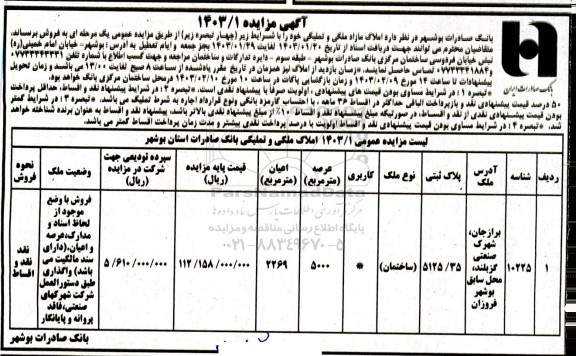 آگهی مزایده ۱۴۰۳/۱
بانک صادرات ایران
بانک صادرات بوشهر در نظر دارد املاک مازاد ملکی و تملیکی خود را با شرایط زیر (چهار تبصره زیر) از طریق مزایده عمومی یک مرحله ای به فروش برساند،
متقاضیان محترم می توانند جهت دریافت اسناد از تاریخ ۱۴۰۳/۰۱/۲۰ لغایت ۱۴۰۳/۰۱/۲۹ بجز جمعه و ایام تعطیل به آدرس: بوشهر- خیابان امام خمینی(ره)
نبش خیابان فردوسی ساختمان مرکزی بانک صادرات بوشهر - طبقه سوم - دایره تدارکات و ساختمان مراجعه و جهت کسب اطلاع با شماره تلفن
و ۰۷۷۳۳۳۴۱۱۸۴ تماس حاصل نمایند. زمان بازدید از املاک نیز همزمان در تاریخ مقرر یادشده از ساعت ۹ الی ۱۳/۰۰ می باشند و زمان تحویل
پیشنهادات تا ساعت ۱۴ مورخ ۱۴۰۳/۰۲/۰۹ و زمان بازگشایی پاکات در ساعت ۱۰ مورخ ۱۴۰۳/۰۲/۱۰ در محل ساختمان مرکزی بانک خواهد بود.
*تبصره ۱: در شرایط مساوی بودن قیمت های پیشنهادی، اولویت صرفاً با پیشنهاد نقدی است. *تبصره ۲: در شرایط پیشنهاد نقد و اقساط، حداقل پرداخت
۵۰ درصد قیمت پیشنهادی نقد و بازپرداخت الباقی حداکثر در اقساط ۳۶ ماهه - با احتساب کارمزد بانکی و نوع قرارداد اجاره به شرط تملیک می باشد. *تبصره ۳: در شرایط کمتر
بودن قیمت پیشنهادی نقدی از نقد و اقساط، در صورتیکه مبلغ پیشنهاد نقد و اقساط ۱۰٪ از مبلغ پیشنهاد نقدی بالاتر باشد، پیشنهاد نقد و اقساط به عنوان برنده شناخته خواهد
شد. *تبصره ۴: در شرایط مساوی بودن قیمت پیشنهادی نقد و اقساط اولویت با درصد پرداخت نقدی بیشتر و مدت زمان پرداخت اقساط کمتر می باشد.
لیست مزایده عمومی ۱۴۰۳/۱ املاک ملکی و تملیکی بانک صادرات استان بوشهر
ردیف شناسه آدرس ملک پلاک ثبتی نوع ملک کاربری عرصه (مترمربع) اعیان (مترمربع) قیمت پایه مزایده (ریال) سپرده تودیعی جهت شرکت در مزایده (ریال) وضعیت ملک نحوه فروش
۱ ۱۰۲۲۵ برازجان، شهرک صنعتی گزبلند، محل سابق بوشهر فروزان ۵۱۲۵/۳۵ (ساختمان) * ۵۰۰۰ ۲۲۶۹ ۱۱۲/۱۵۸/۰۰۰/۰۰۰ ۵/۶۱۰/۰۰۰/۰۰۰ فروش با وضع موجود از لحاظ اسناد و مدارک، عرصه و اعیان. (دارای سند مالکیت می باشد) واگذاری طبق دستورالعمل شرکت شهرکهای صنعتی، فاقد پروانه و پایانکار نقد نقد و اقساط
ParsNamadData
پایگاه اطلاع رسانی مناقصه و مزایده
۰۲۱-۸۸۳۴۹۶۷۰-۵
بانک صادرات بوشهر